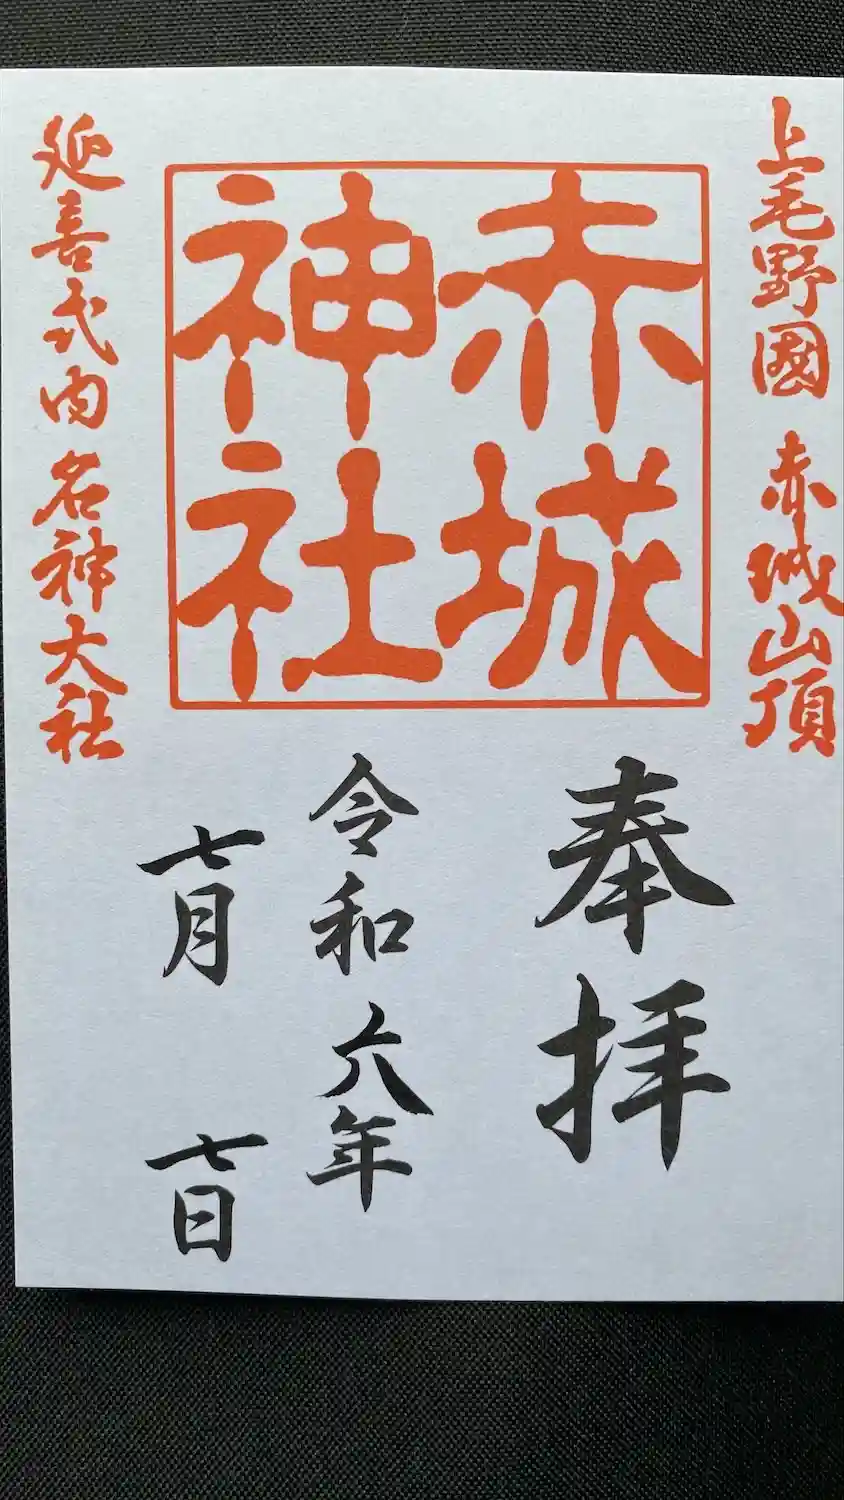 上毛野國 赤城山頂
赤城
神社
奉拝
令和六年
七月 七日
延喜式内 名神大社